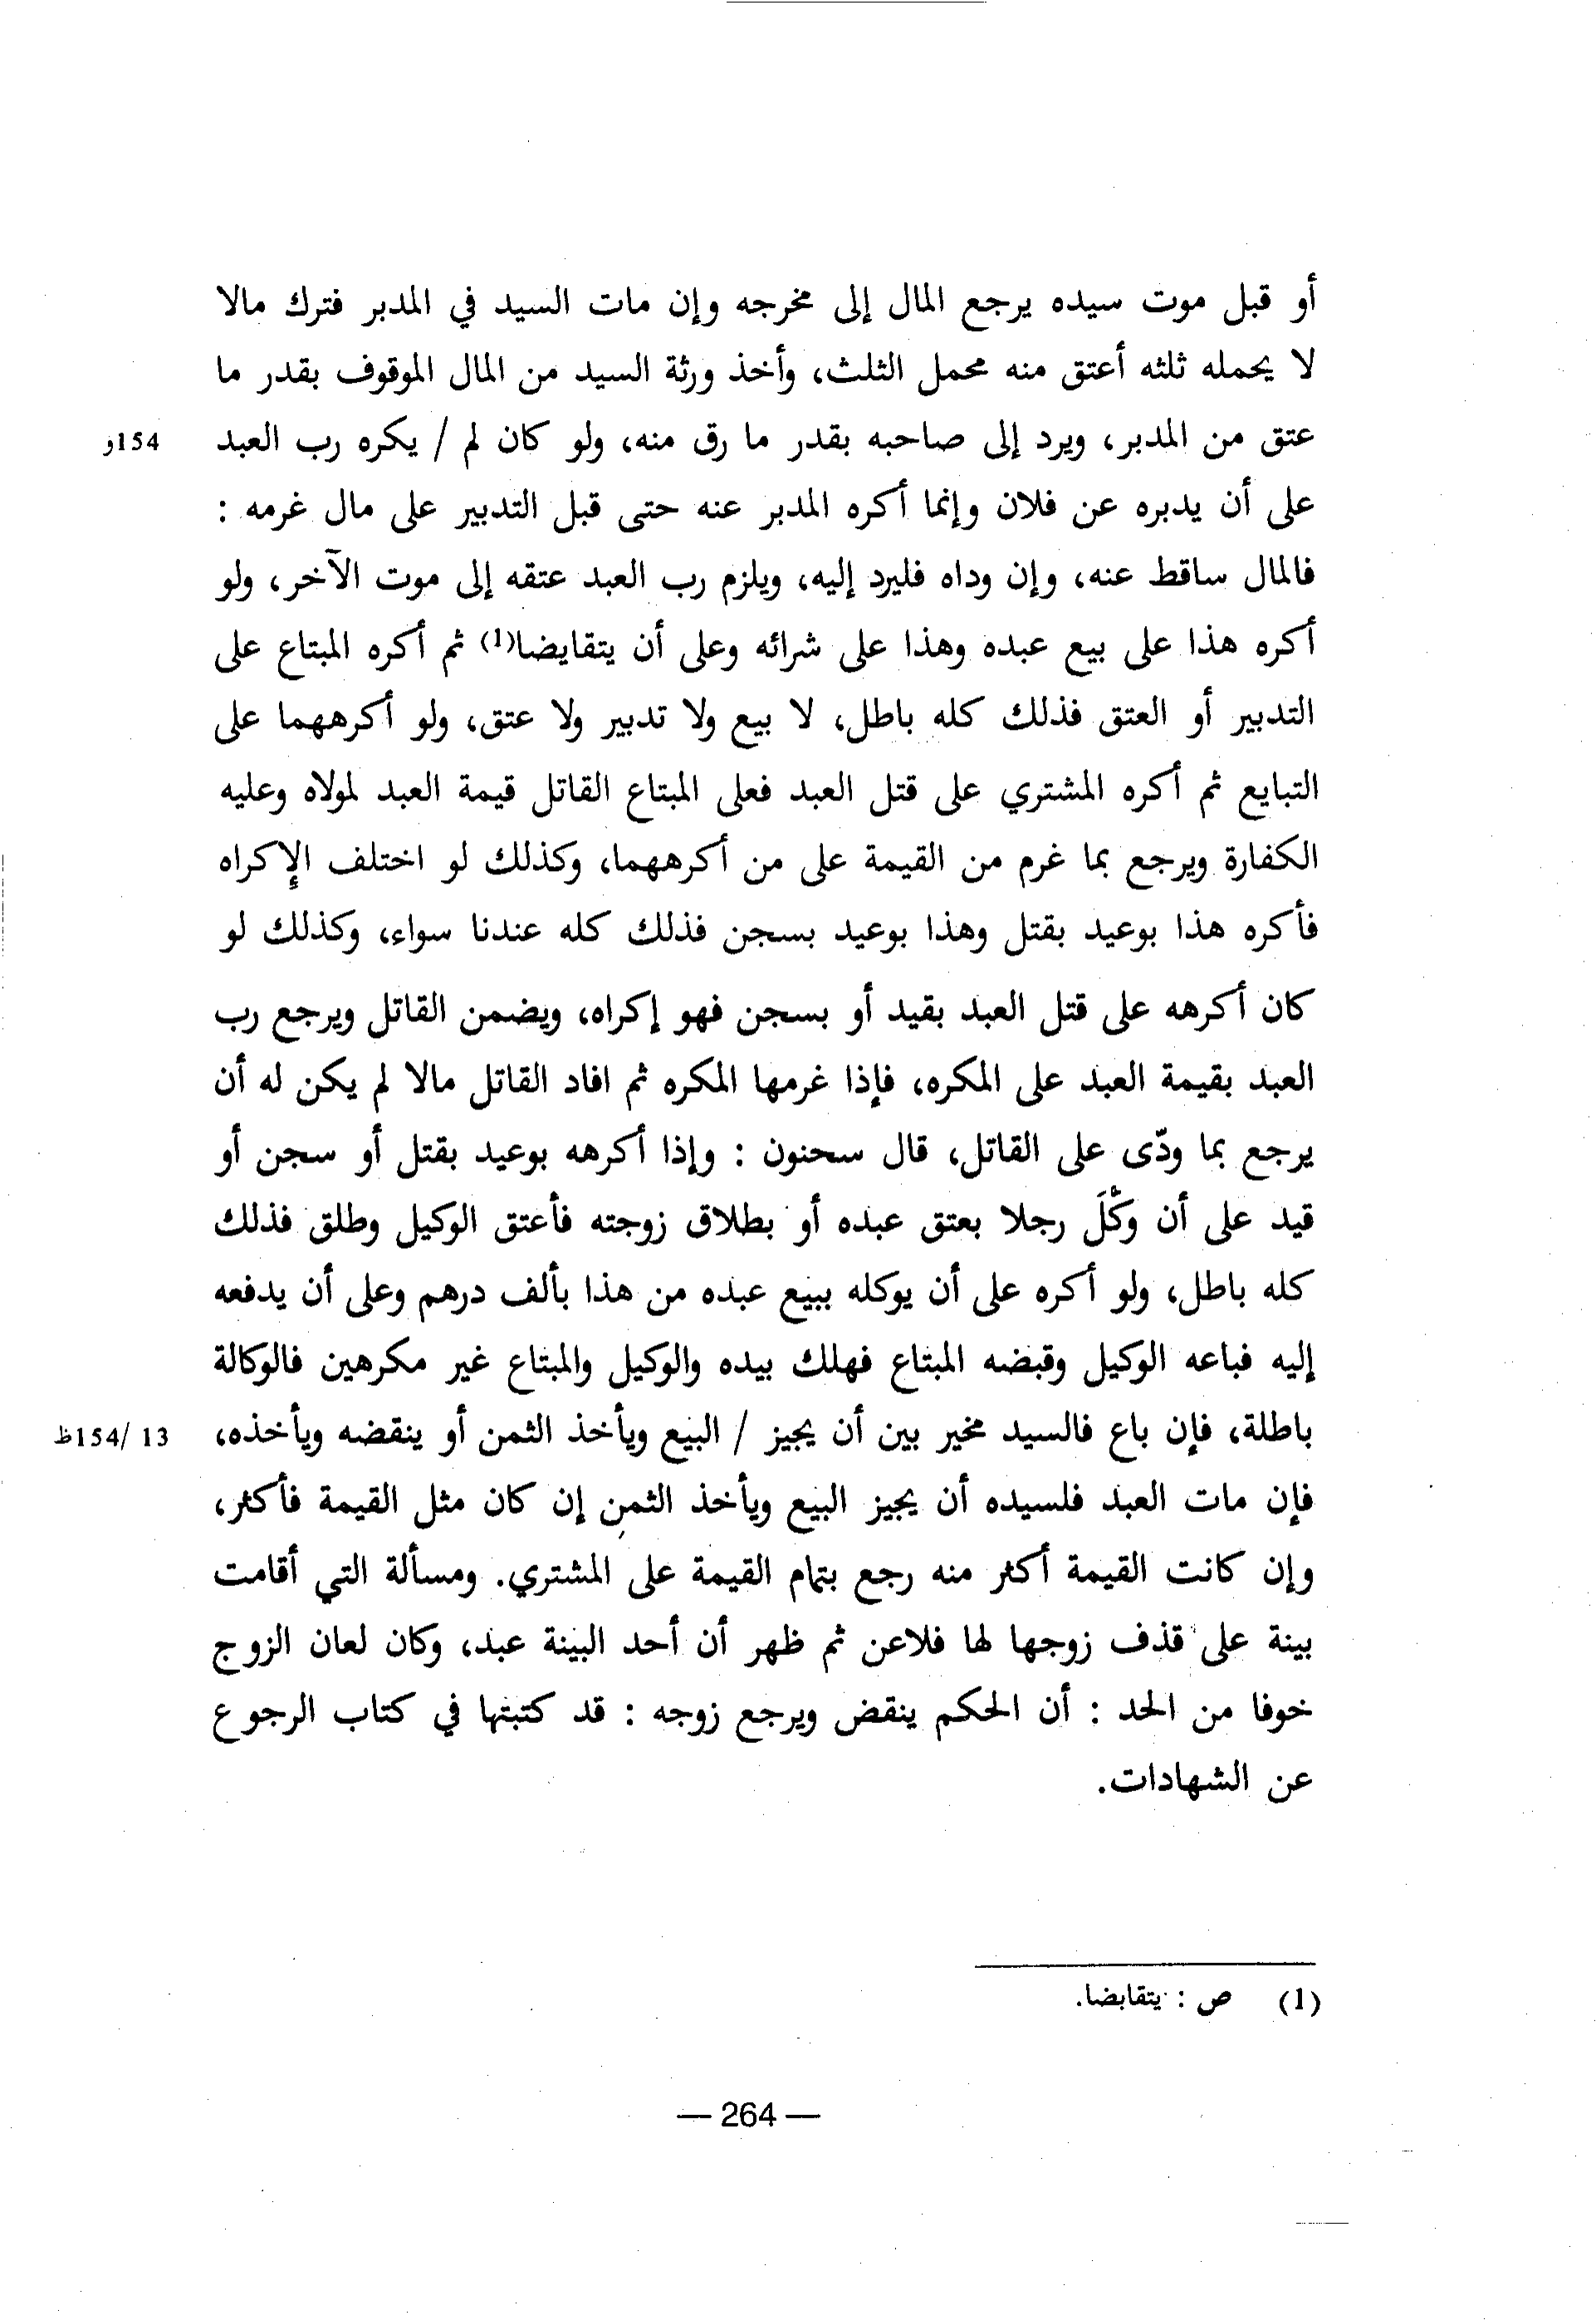 أو قبل موت سيده يرجع المال إلى مخرجه وإن مات السيد في المدبر فترك مالا
لا يحمله ثلثه أعتق منه محمل الثلث، وأخذ ورثة السيد من المال الموقوف بقدر ما
عتق من المدبر، ويرد إلى صاحبه بقدر ما رق منه، ولو كان لم / يكره رب العبد
154و
على أن يدبره عن فلان وإنما أكره المدبر عنه حتى قبل التدبير على مال غرمه :
فالمال ساقط عنه، وإن وداه فليرد إليه، ويلزم رب العبد عتقه إلى موت الآخر، ولو
أكره هذا على بيع عبده وهذا على شرائه وعلى أن يتقايضا(1) ثم أكره المبتاع على
التدبير أو العتق فذلك كله باطل، لا بيع ولا تدبير ولا عتق، ولو أكرههما على
التبايع ثم أكره المشتري على قتل العبد فعلى المبتاع القاتل قيمة العبد لمولاه وعليه
الكفارة ويرجع بما غرم من القيمة على من أكرههما، وكذلك لو اختلف الإكراه
فأكره هذا بوعيد بقتل وهذا بوعيد بسجن فذلك كله عندنا سواء، وكذلك لو
كان أكرهه على قتل العبد بقيد أو بسجن فهو إكراه، ويضمن القاتل ويرجع رب
العبد بقيمة العبد على المكره، فإذا غرمها المكره ثم افاد القاتل مالا لم يكن له أن
يرجع بما ودّى على القاتل، قال سحنون : وإذا أكرهه بوعيد بقتل أو سجن أو
قيد على أن وكَّلَ رجلا بعتق عبده أو بطلاق زوجته فأعتق الوكيل وطلق فذلك
كله باطل، ولو أكره على أن يوكله ببيع عبده من هذا بألف درهم وعلى أن يدفعه
إليه فباعه الوكيل وقبضه المبتاع فهلك بيده والوكيل والمبتاع غير مكرهين فالوكالة
باطلة، فإن باع فالسيد مخير بين أن يجيز / البيع ويأخذ الثمن أو ينقضه ويأخذه،
13 /154ظ
فإن مات العبد فلسيده أن يجيز البيع ويأخذ الثمن إن كان مثل القيمة فأكثر،
وإن كانت القيمة أكثر منه رجع بتمام القيمة على المشتري. ومسألة التي أقامت
بينة على قذف زوجها لها فلاعن ثم ظهر أن أحد البينة عبد، وكان لعان الزوج
خوفا من الحد : أن الحكم ينقض ويرجع زوجه : قد كتبتها في كتاب الرجوع
عن الشهادات.
(1) ص : يتقابضا.
— 264 —